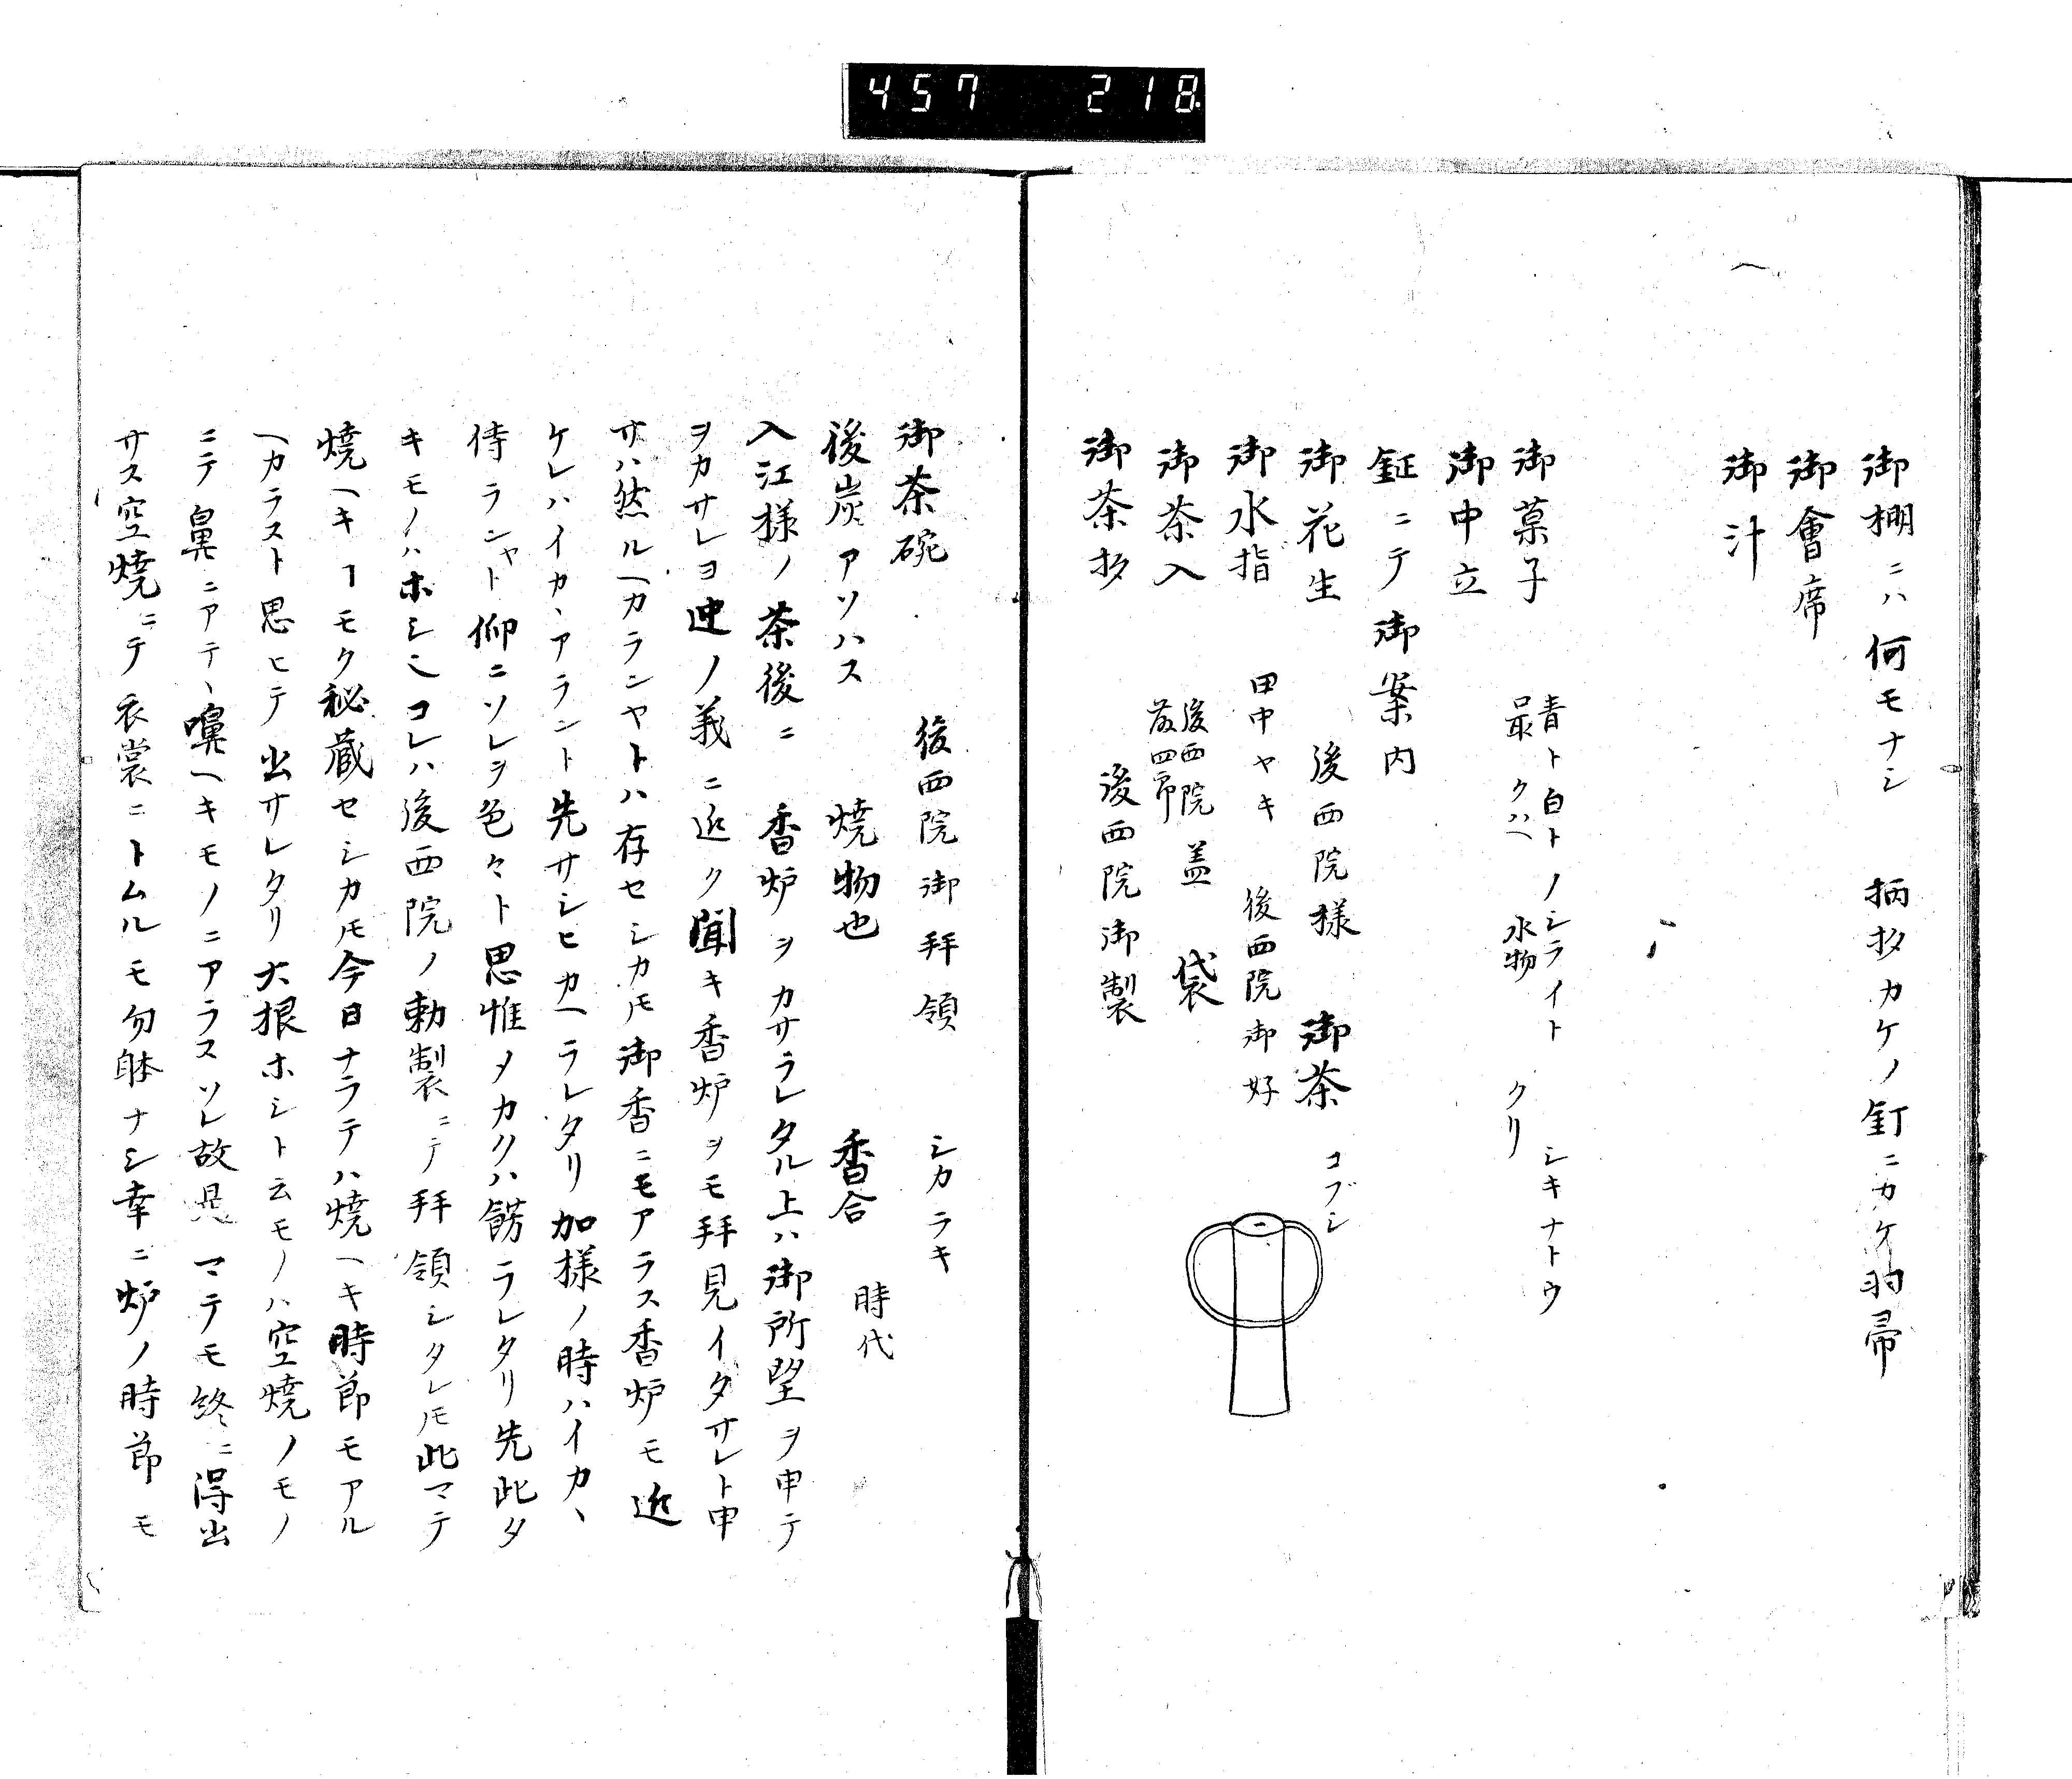 457 218
御棚ニハ何モナシ 柄杓カケノ釘ニカケ羽帚
御會席
御汁
御菓子 青ト白トノシライト シキナトウ
最 クハヘ 水物 クリ
御中立
鉦ニテ御案内
御花生 後西院様 御茶 コブシ
御水指 田中ヤキ 後西院御好
御茶入 後西院 蓋 袋
御茶杓 後西院御製
御茶碗 後西院御拝領 シカラキ
後炭アソハス 焼物也 香合 時代
入江様ノ茶後ニ 香炉ヲカサラレタル上ハ御所望ヲ申テ
ヲカサレヨ迚ノ義ニ近ク聞キ香炉ヲモ拝見イタサレト申
サハ然ルヘカランヤトハ存セシカ𪜈御香ニモアラス香炉モ近
ケレハイカヽアラント先サシヒカヘラレタリ加様ノ時ハイカヽ
侍ランヤト仰ニソレヲ色々ト思惟メカクハ餝ラレタリ先此タ
キモノハホシミコレハ後西院ノ勅製ニテ拝領シタレ𪜈此マテ
焼ヘキヿモク秘蔵セシカ𪜈今日ナラテハ焼ヘキ時節モアル
ヘカラスト思ヒテ出サレタリ大根ホシト云モノハ空焼ノモノ
ニテ鼻ニアテヽ嗅ヘキモノニアラスソレ故是マテモ終ニ得出
サス空焼ニテ衣裳ニトムルモ勿躰ナシ幸ニ炉ノ時節モ